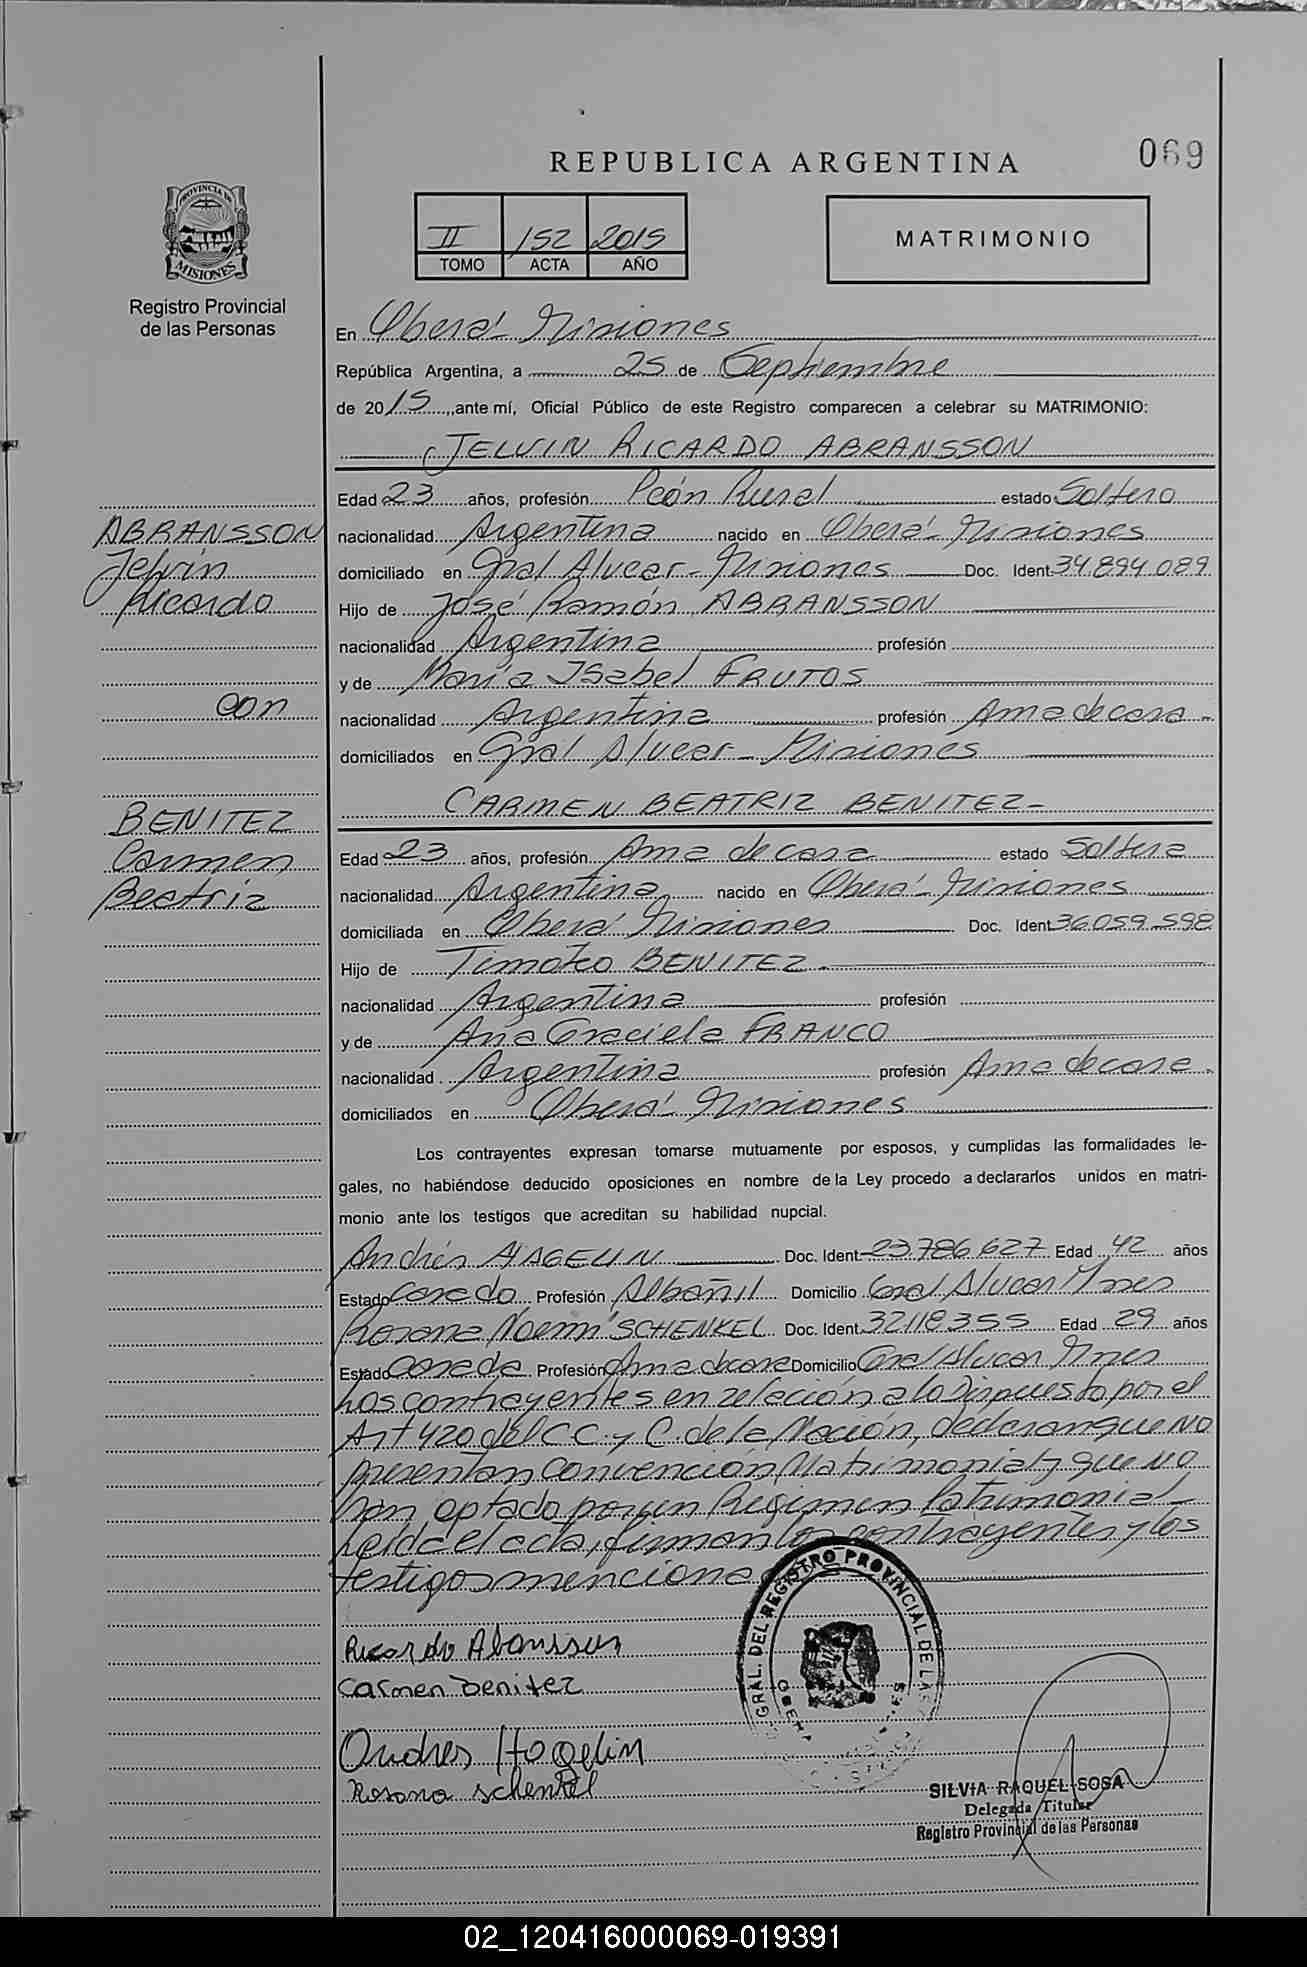 069
REPUBLICA ARGENTINA
II 152 2015
TOMO ACTA AÑO
MATRIMONIO
PROVINCIA DE
MISIONES
Registro Provincial
de las Personas
En Oberá - Misiones
República Argentina, a 25 de Septiembre
de 2015, ante mí, Oficial Público de este Registro comparecen a celebrar su MATRIMONIO:
JELVIN RICARDO ABRANSSON
Edad 23 años, profesión Peón Rural estado Soltero
ABRANSSON
Jelvin
Ricardo
con
BENITEZ
Carmen
Beatriz
nacionalidad Argentina nacido en Oberá - Misiones
domiciliado en Gral Alvear - Misiones Doc. Ident. 34.894.089
Hijo de José Ramón ABRANSSON
nacionalidad Argentina profesión
y de María Isabel FRUTOS
nacionalidad Argentina profesión Ama de casa -
domiciliados en Gral Alvear - Misiones
CARMEN BEATRIZ BENITEZ -
Edad 23 años, profesión Ama de casa estado Soltera
nacionalidad Argentina nacido en Oberá - Misiones
domiciliada en Oberá Misiones Doc. Ident. 36.059.598
Hijo de Timoteo BENITEZ -
nacionalidad Argentina profesión
y de Ana Graciela FRANCO
nacionalidad Argentina profesión Ama de casa -
domiciliados en Oberá - Misiones
Los contrayentes expresan tomarse mutuamente por esposos, y cumplidas las formalidades le-
gales, no habiéndose deducido oposiciones en nombre de la Ley procedo a declararlos unidos en matri-
monio ante los testigos que acreditan su habilidad nupcial.
Andrés HAGELIN Doc. Ident. 23.786.627 Edad 42 años
Estado Casado Profesión Albañil Domicilio Gral Alvear Mnes
Rosana Noemí SCHENKEL Doc. Ident. 32.118.355 Edad 29 años
Estado Casada Profesión Ama de casa Domicilio Gral Alvear Mnes
Los contrayentes en relación a lo Dispuesto por el
Art 420 del C C. y C. de la Nación, declaran que NO
presentan Convención Matrimonial y que NO
han optado por un Régimen Patrimonial -
Leída el acta, firman los contrayentes y los
testigos menciona
GRAL. DEL REGISTRO PROVINCIAL DE LAS
OBERA
Ricardo Abransson
Carmen Benitez
Andres Hagelin
Rosana Schenkel
SILVIA RAQUEL SOSA
Delegada Titular
Registro Provincial de las Personas
02_120416000069-019391